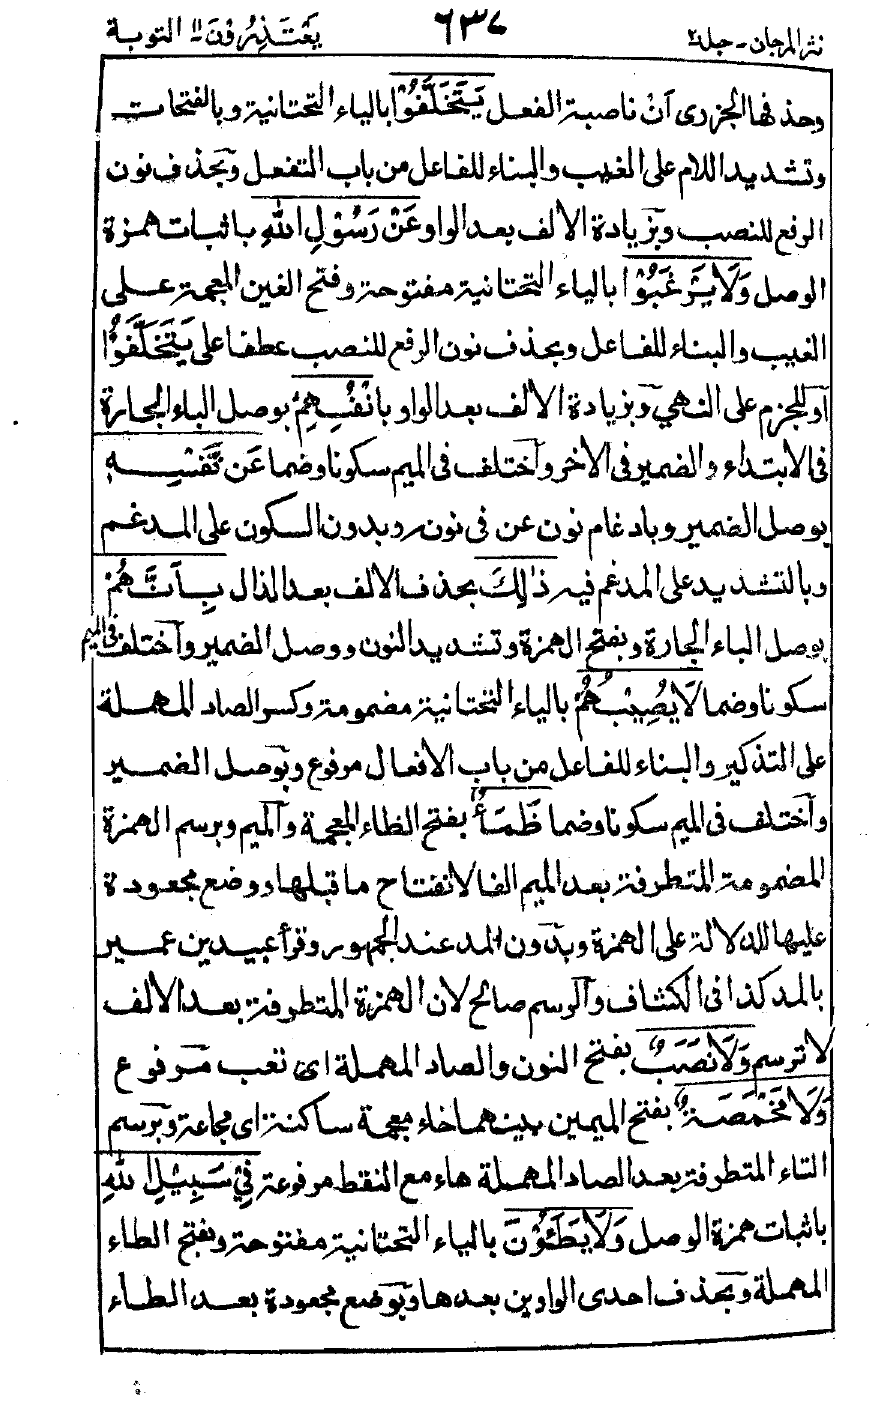 نثر المرجان - جلد ٢ ٦٣٧ يَعْتَذِرُوْنَ ١١ التوبة
وحذفها الجزرى آنْ ناصبة الفعل يَتَخَلَّفُوْا بالياء التحتانية وبالفتحات
وتشديد اللام على الغيب والبناء للفاعل من باب التفعل وبحذف نون
الرفع للنصب وبزيادة الالف بعد الواو عَنْ رَسُوْلِ اللهِ باثبات همزة
الوصل وَلَا يَرْغَبُوْا بالياء التحتانية مفتوحة وفتح الغين المعجمة على
الغيب والبناء للفاعل وبحذف نون الرفع للنصب عطفا على يَتَخَلَّفُوْا
آو للجزم على النهي وبزيادة الالف بعد الواو بِاَنْفُسِهِمْ بوصل الباء الجارة
فى الابتداء والضمير فى الآخر وآختلف فى الميم سكونا وضما عَنْ نَّفْسِهٖ
بوصل الضمير وبادغام نون عن فى نون وبدون السكون على المدغم
وبالتشديد على المدغم فيه ذٰلِكَ بحذف الالف بعد الذال بِاَنَّهُمْ
بوصل الباء الجارة وبفتح الهمزة وتشديد النون ووصل الضمير وآختلف فى الميم
سكونا وضما لَا يُصِيْبُهُمْ بالياء التحتانية مضمومة وكسر الصاد المهملة
على التذكير والبناء للفاعل من باب الافعال مرفوع وبوصل الضمير
وآختلف فى الميم سكونا وضما ظَمَاٌ بفتح الظاء المعجمة والميم وبرسم الهمزة
المضمومة المتطرفة بعد الميم الفا لانفتاح ما قبلها ووضع مجعودة
عليها للدلالة على الهمزة وبدون المد عند الجمهور وقرأ عبيد بن عمير
بالمد كذا فى الكشاف وآلرسم صالح لان الهمزة المتطرفة بعد الالف
لا ترسم وَلَا نَصَبٌ بفتح النون والصاد المهملة اى تعب مرفوع
وَلَا مَخْمَصَةٌ بفتح الميمين بينهما خاء معجمة ساكنة اى مجاعة وبرسم
التاء المتطرفة بعد الصاد المهملة هاء مع النقط مرفوعة فِيْ سَبِيْلِ اللهِ
باثبات همزة الوصل وَلَا يَطَئُوْنَ بالياء التحتانية مفتوحة وبفتح الطاء
المهملة وبحذف احدى الواوين بعدها وبوضع مجعودة بعد الطاء